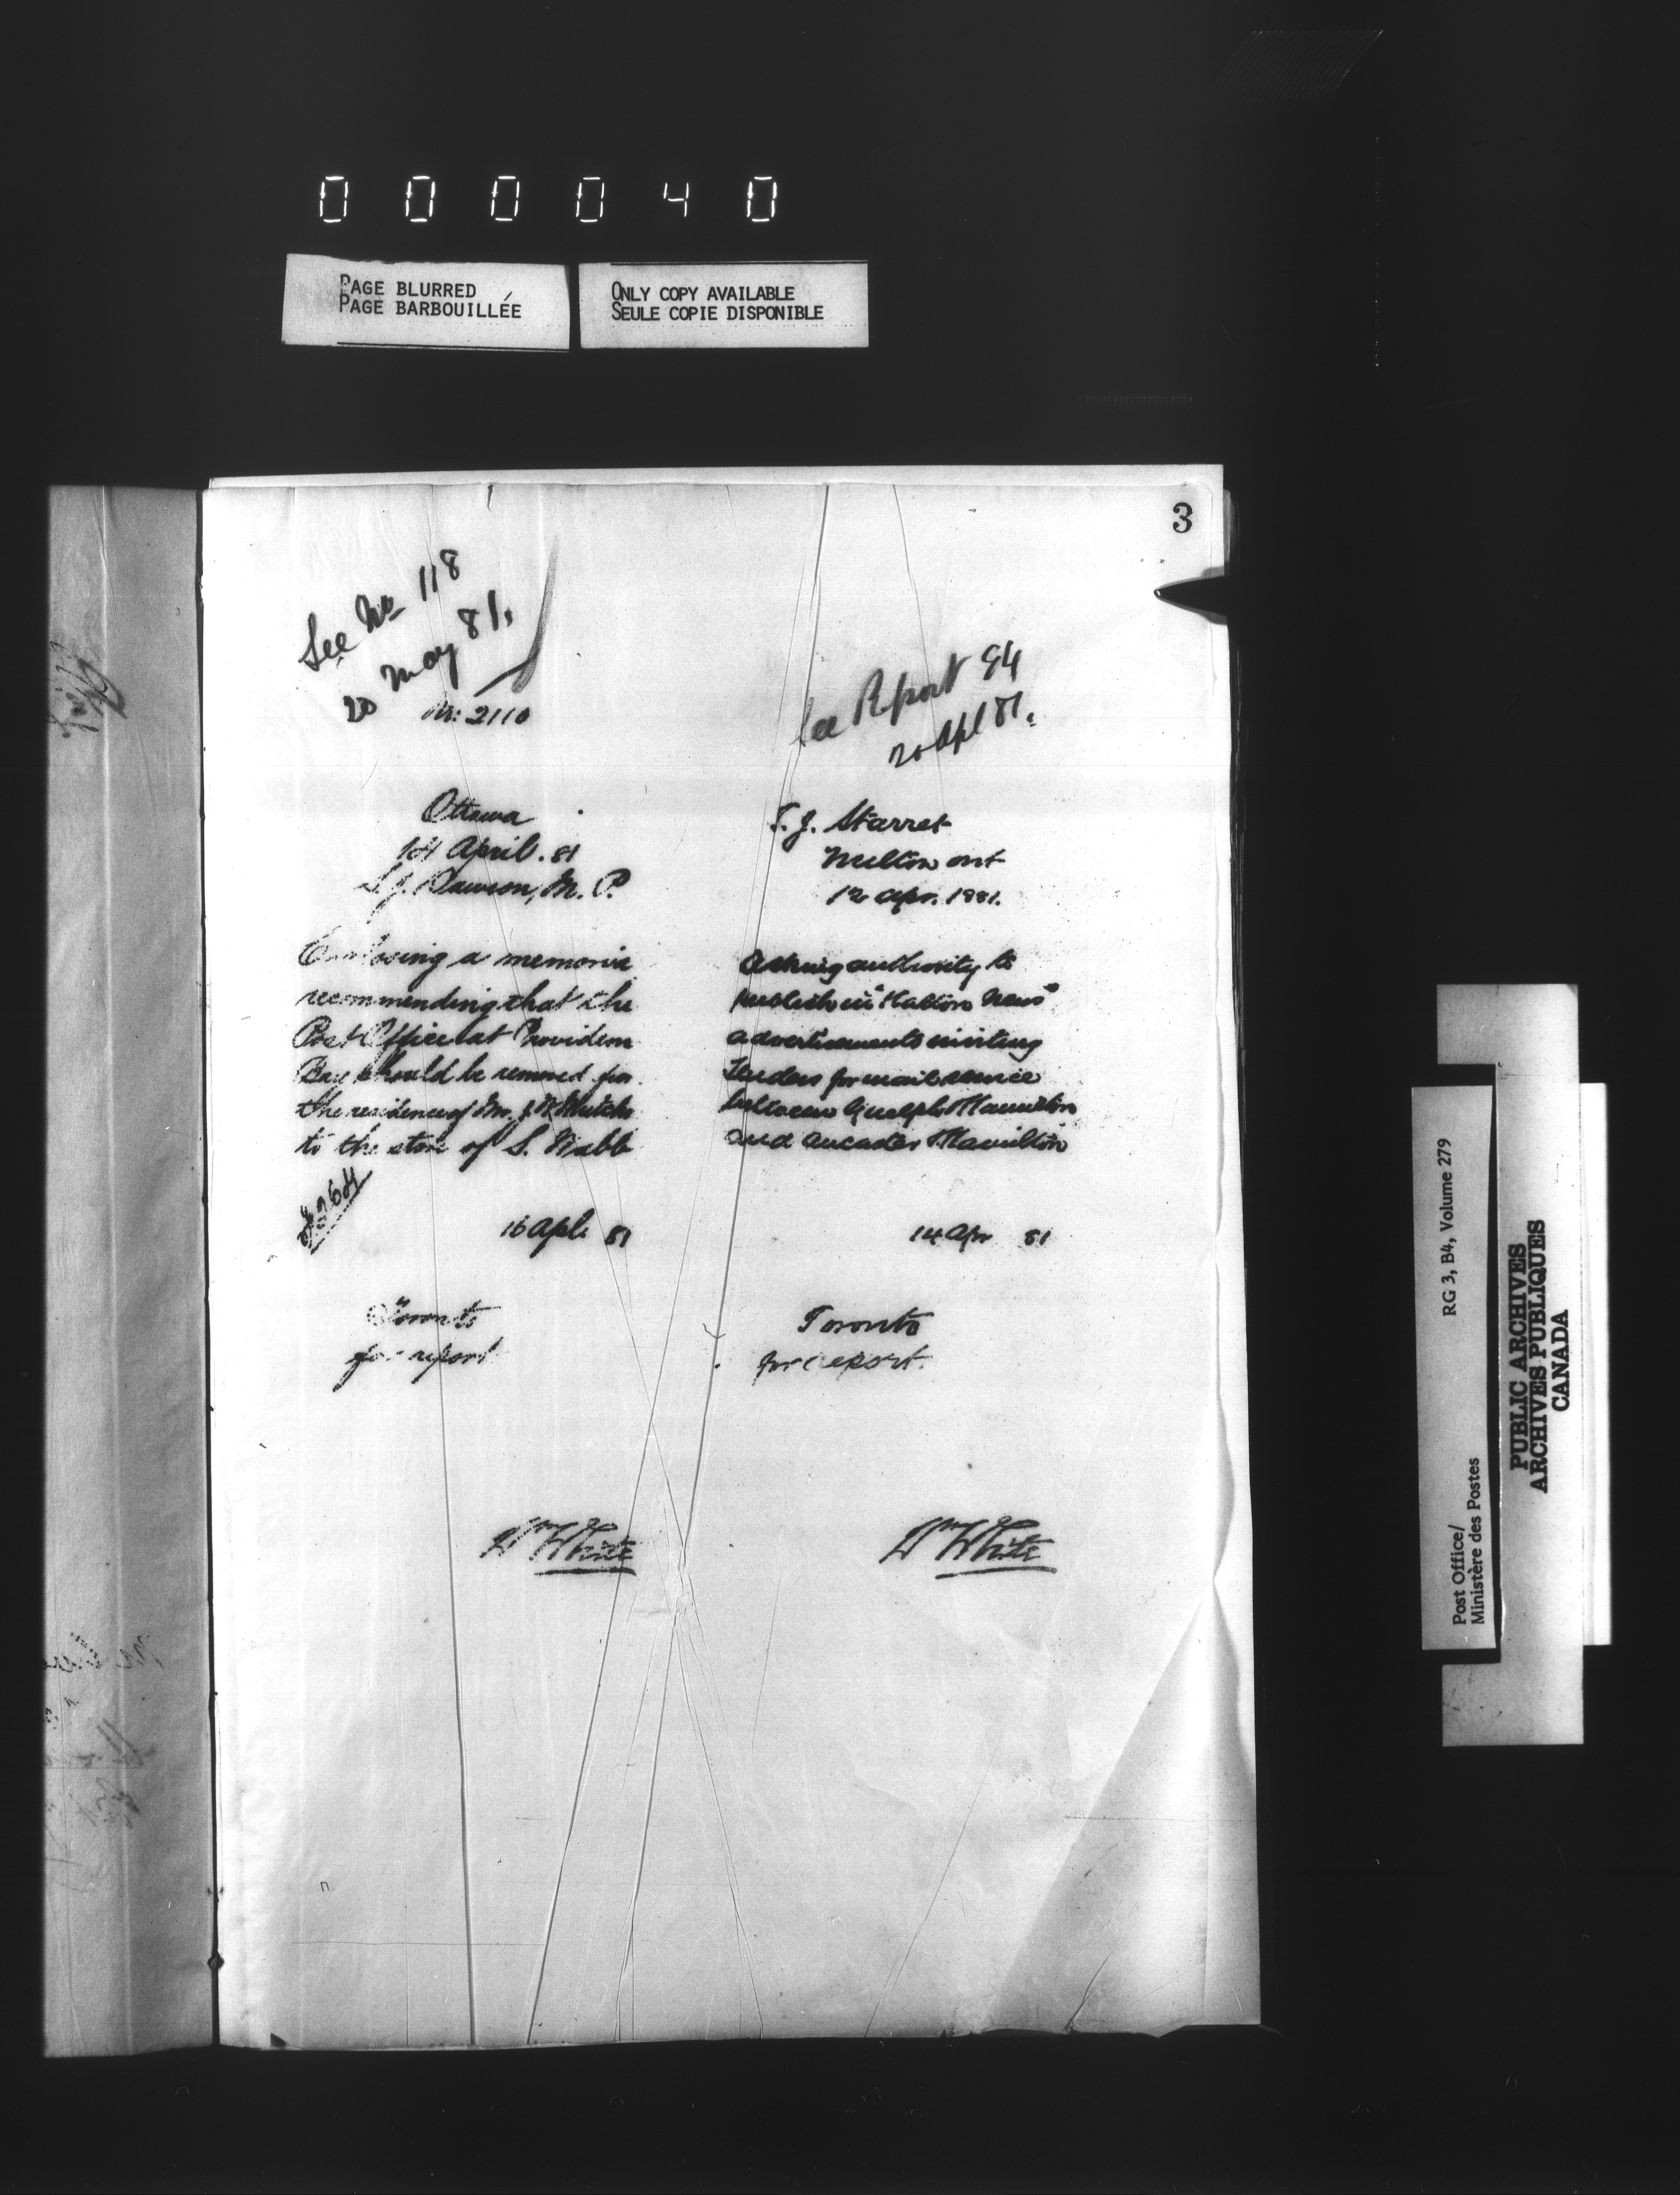 000040
PAGE BLURRED
PAGE BARBOUILLÉE
ONLY COPY AVAILABLE
SEULE COPIE DISPONIBLE
3
See No 118
20 May 81.
No: 2110
Ottawa
14 April. 81
S.J. Dawson, M. P.
Enclosing a memoria
recommending that the
Post Office at Providence
Bay should be removed from
the residence of Mr.
to the store of S. Webb
16 Apl. 81
Toronto
for report
Wm White
See Report 94
20 Apl 81.
T. J. Starret
Milton ont
12 apr. 1881.
Asking authority to
publish in "Halton News"
advertisements inviting
Tenders for mail service
between Guelph & Hamilton
and Ancaster & Hamilton
14 Apr 81
Toronto
for report.
Wm White
RG 3, B4, Volume 279
Post Office/
Ministère des Postes
PUBLIC ARCHIVES
ARCHIVES PUBLIQUES
CANADA